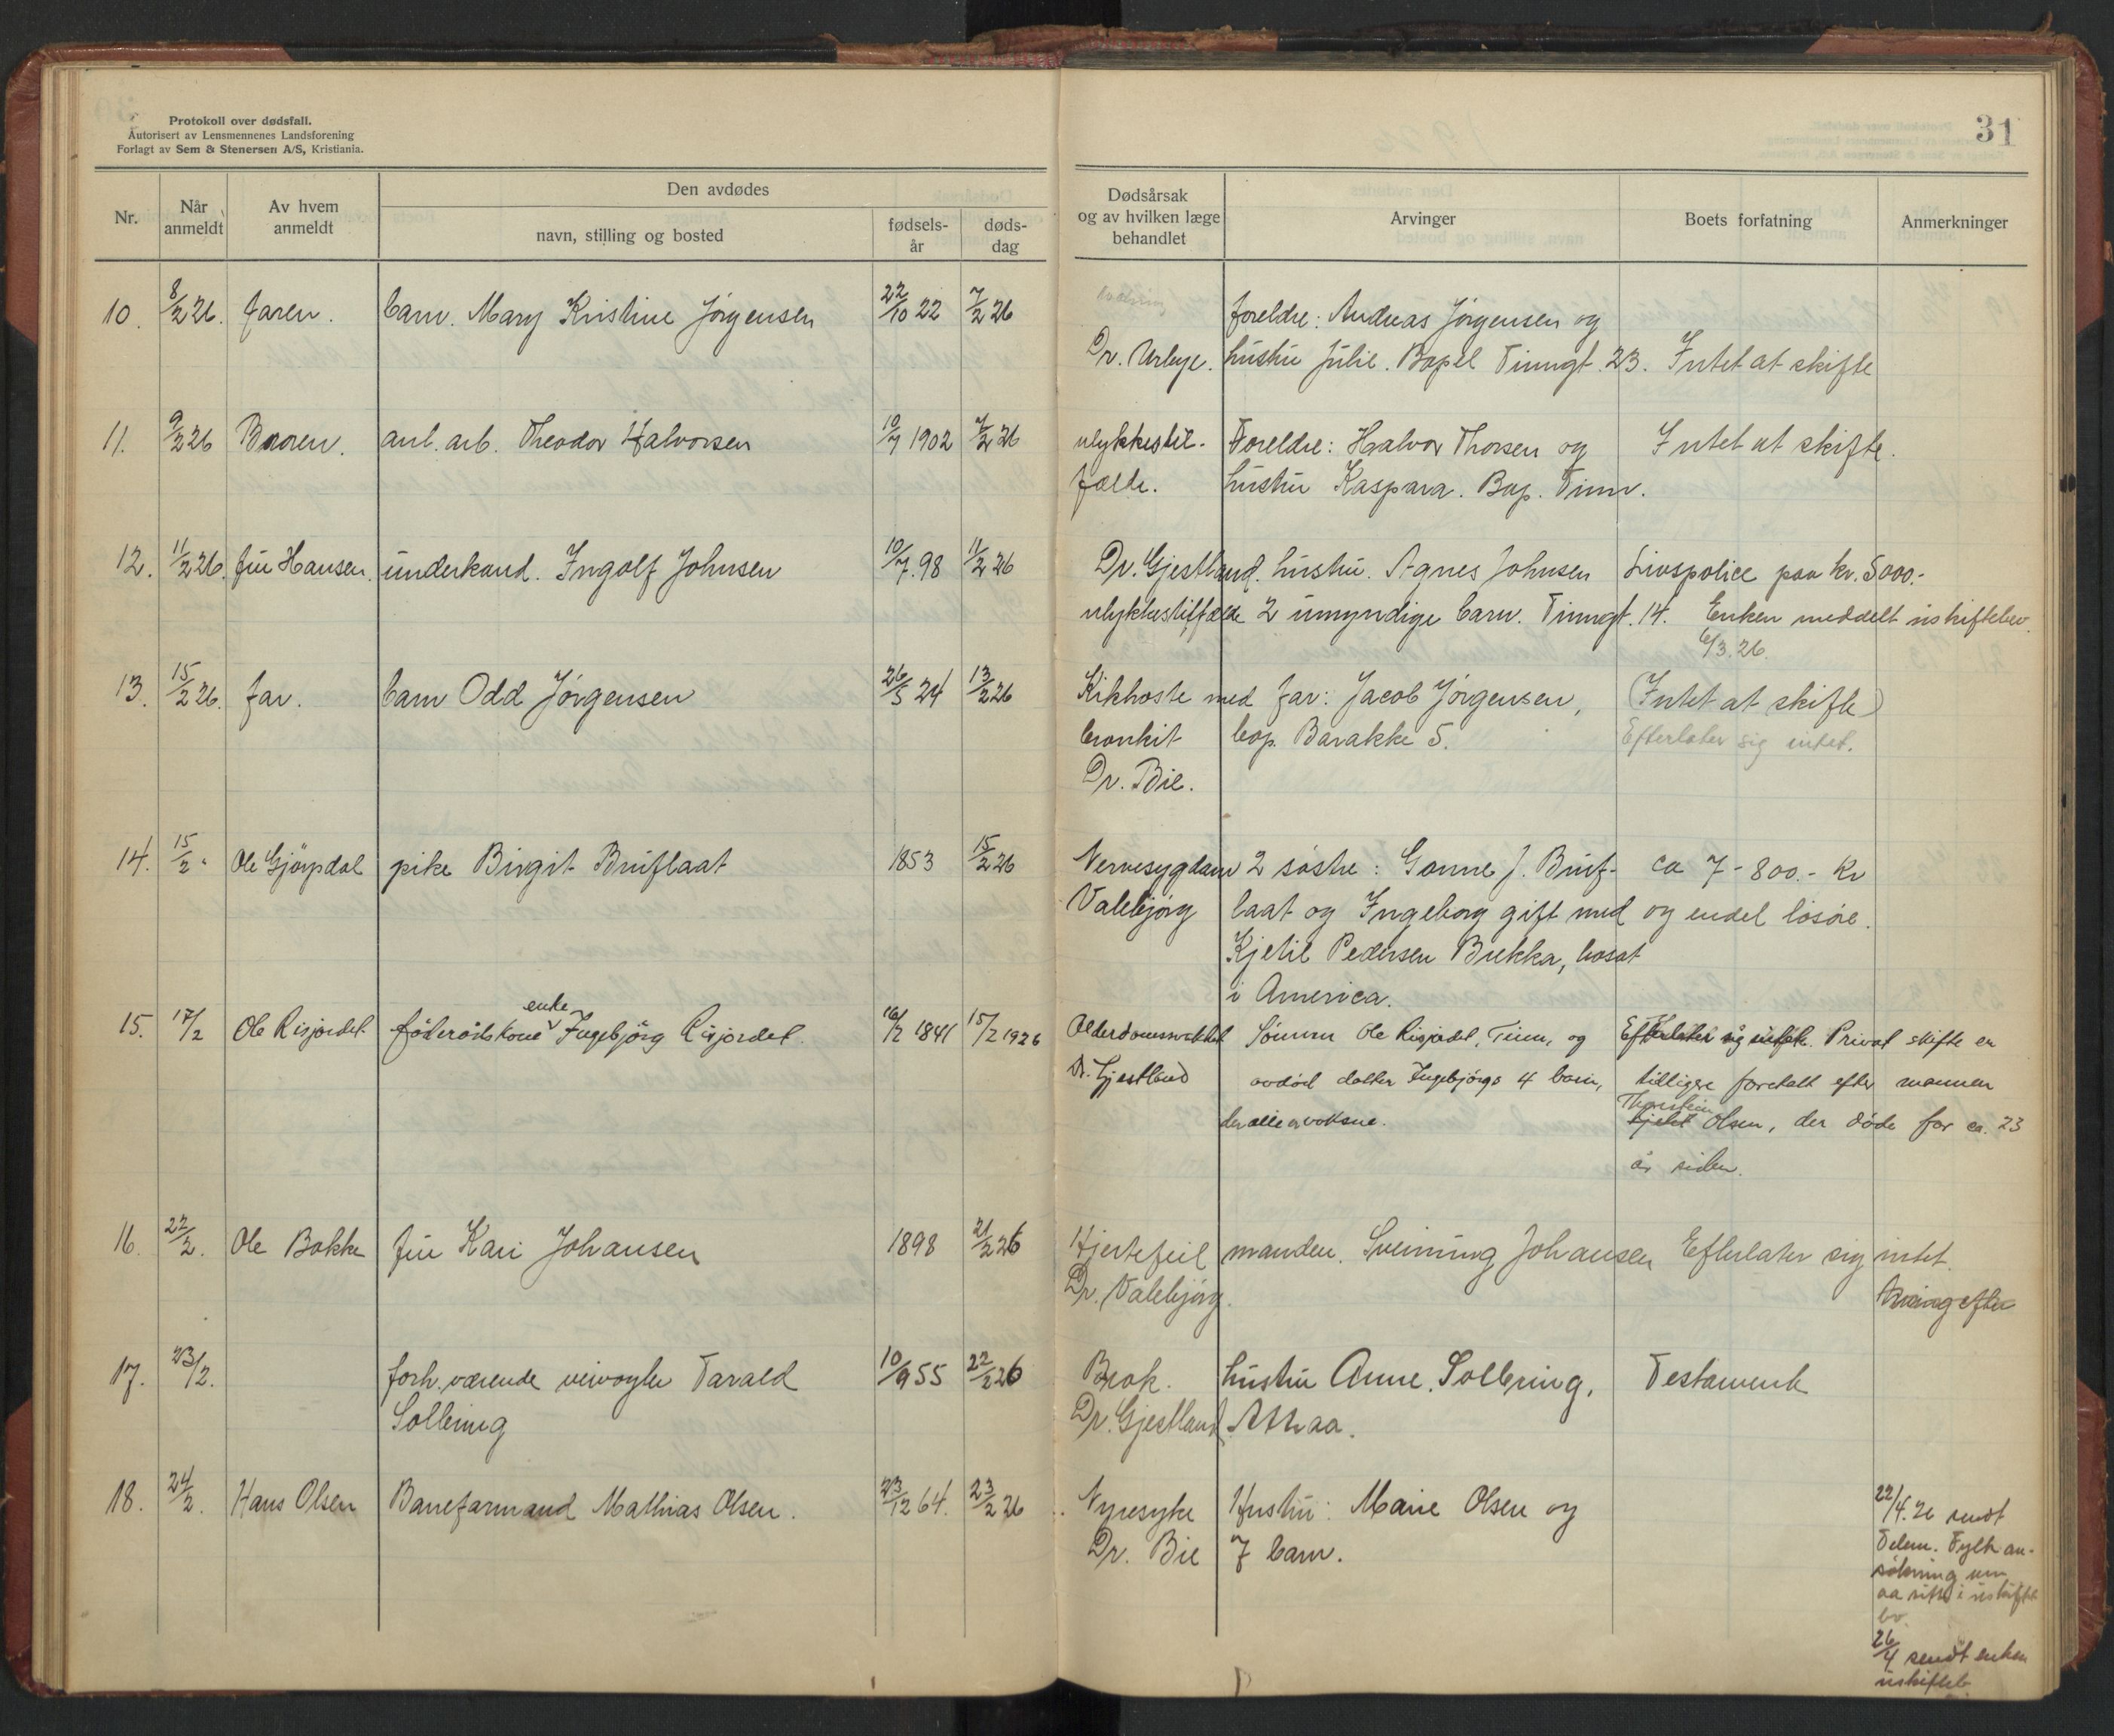 Protokoll over dødsfall.
Autorisert av Lensmennenes Landsforening
Forlagt av Sem & Stenersen A/S, Kristiania.
31
Nr.
Når anmeldt
Av hvem anmeldt
Den avdødes
navn, stilling og bosted
fødsels-år
døds-dag
Dødsårsak og av hvilken læge behandlet
Arvinger
Boets forfatning
Anmerkninger
10. 8/2 26. faren. barn. Mary Kristine Jørgensen 22/10 22 7/2 26 foreldre: Andreas Jørgensen og
Dr. Urbye. hustru Julie. Bopel Tinngt. 23. Intet at skifte
11. 9/2 26 Broren. anl. arb. Theodor Halvorsen 10/7 1902 7/2 26 ulykkestil- Foreldre: Halvor Thorsen og Intet at skifte.
fælde. hustru Kaspara. Bop. Tinn.
12. 11/2 26. fru Hansen. underkand. Ingolf Johnsen 10/7. 98 11/2 26 Dr. Gjestland. hustru. Agnes Johnsen Livspolice paa kr. 5000.-
ulykkestilfælde 2 umyndige barn. Tinngt. 14. Enken meddelt uskiftebev.
6/3. 26.
13. 15/2 26. far. barn Odd Jørgensen 26/5 24 13/2 26 Kikhoste med far: Jacob Jørgensen, (Intet at skifte)
bronkit bop. Barakke 5. Efterlater sig intet.
Dr. Bie.
14. 15/2 " Ole Gjøysdal pike Birgit Bruflaat 1853 15/2 26 Nervesygdom 2 søstre: Gonne J. Bruf- ca 7-800.- Kr
Valebjørg laat og Ingeborg gift med og endel løsøre.
Kjetil Pedersen Bukka, bosat
i America.
15. 17/2 Ole Risjordet føderådskone enke Ingebjörg Risjordet. 16/2 1841 15/2 1926 Alderdomssvakhet Sönnen Ole Risjordet, Tinn, og Efterlater sig intet. Privat skifte er
Dr. Gjestland avdöd datter Ingebjörgs 4 barn, tidligere foretatt efter mannen
der alle er voksne. Thorstein
Kjetil Olsen, der döde for ca. 23
år siden.
16. 22/2. Ole Bakke fru Kari Johansen 1898 21/2 26 Hjertefeil manden. Sveinung Johansen Efterlater sig intet.
Dr. Valebjørg. Arving efter
17. 23/2. forh. værende veivogter Tarald 10/9 55 22/2 26 Brok. hustru Anne Solbring, Testament
Solbring Dr. Gjestland Attraa.
18. 24/2. Hans Olsen Baneformand Mathias Olsen. 23/12 64. 23/2 26 Nyresyke Hustru: Marie Olsen og
Dr. Bie 7 barn.
22/4. 26 sendt
Telem. Fylk an-
søkning um
aa sitte i uskiftet
bo.
26/4 sendt enken
uskifteb.